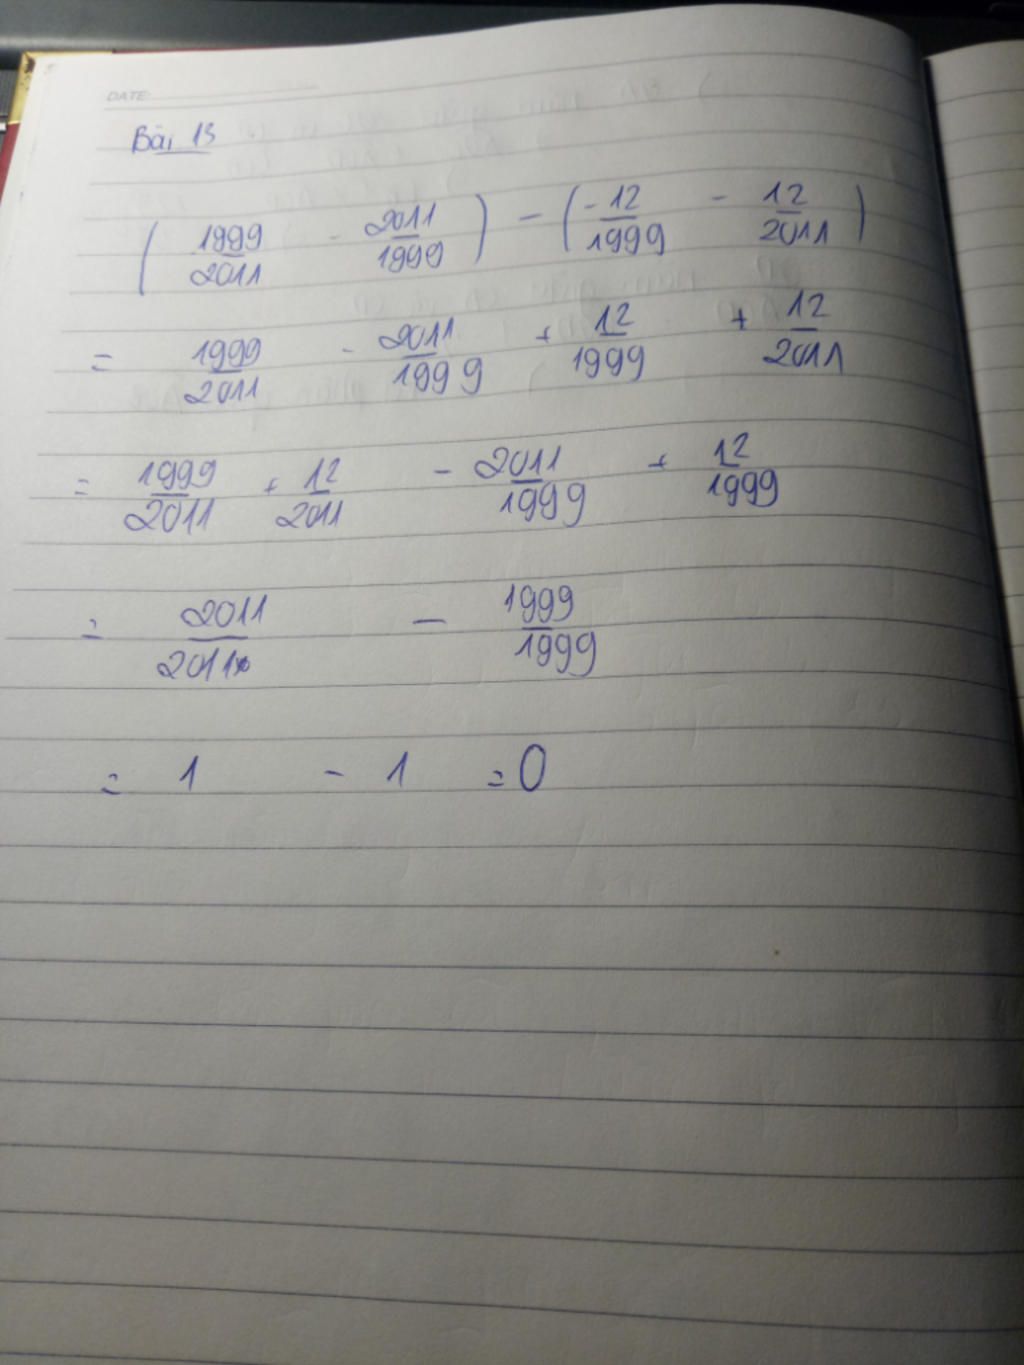 DATE:
Bài 13
( 1999/2011 - 2011/1999 ) - ( -12/1999 - 12/2011 )
= 1999/2011 - 2011/1999 + 12/1999 + 12/2011
= 1999/2011 + 12/2011 - 2011/1999 + 12/1999
= 2011/2011 - 1999/1999
= 1 - 1 = 0